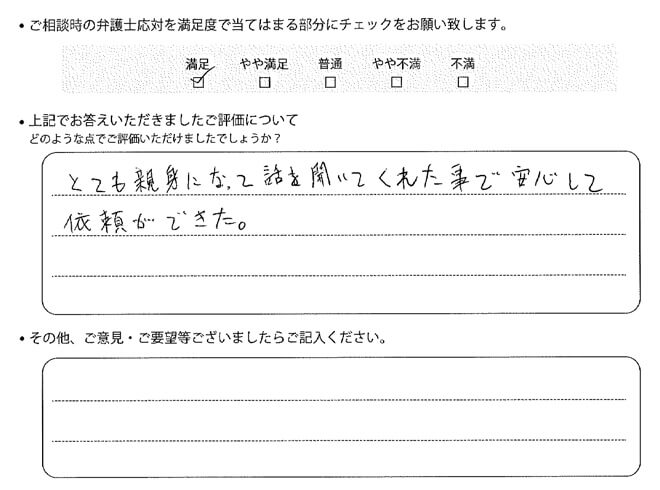 ・ご相談時の弁護士応対を満足度で当てはまる部分にチェックをお願い致します。
満足 やや満足 普通 やや不満 不満
☑ □ □ □ □
・上記でお答えいただきましたご評価について
どのような点でご評価いただけましたでしょうか？
とても親身になって話を聞いてくれた事で安心して
依頼ができた。
・その他、ご意見・ご要望等ございましたらご記入ください。